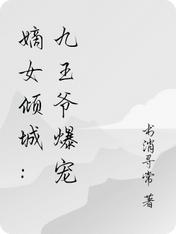 嫡女倾城：
九王爷爆宠
书消寻常 著